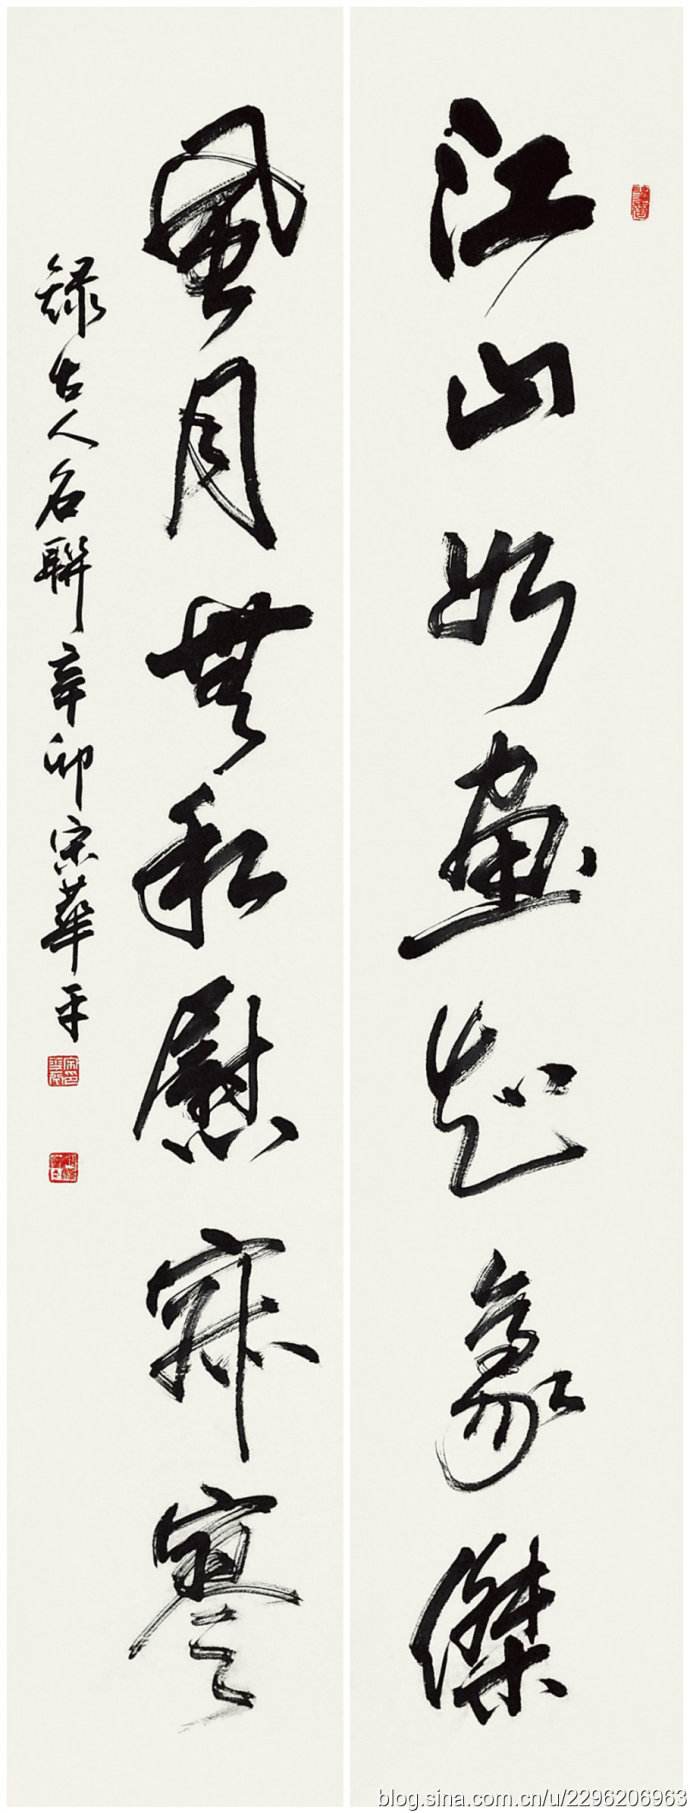 江山如画起豪傑
風月無私慰寂寥
録古人名聯辛卯宋華平
blog.sina.com.cn/u/2296206963